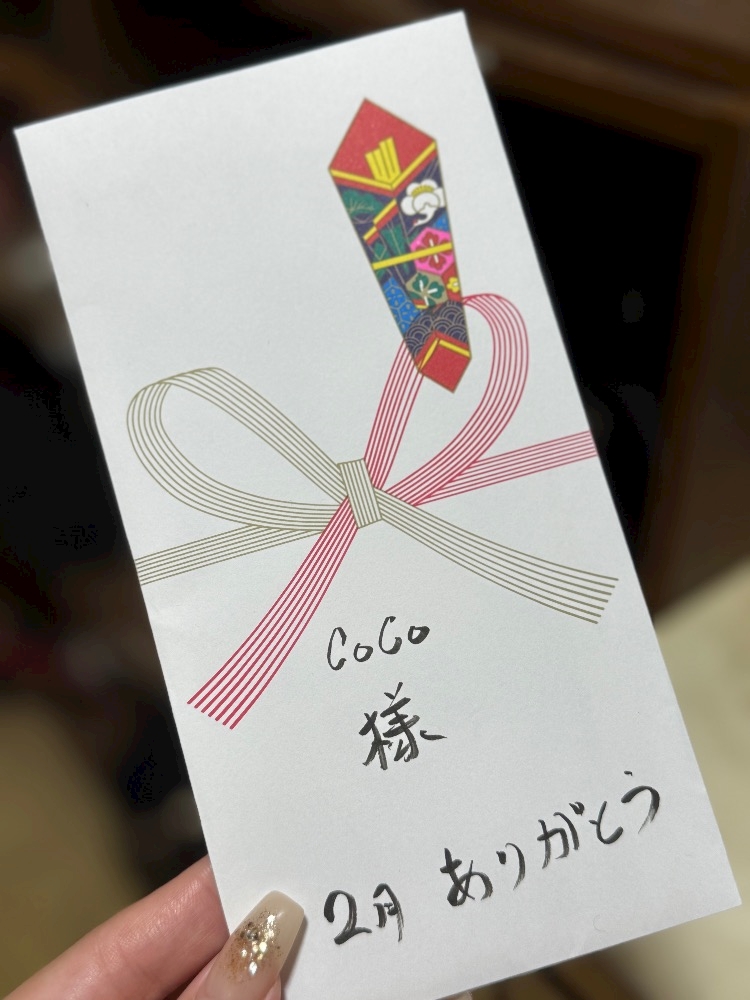 CoCo
様
2月 ありがとう